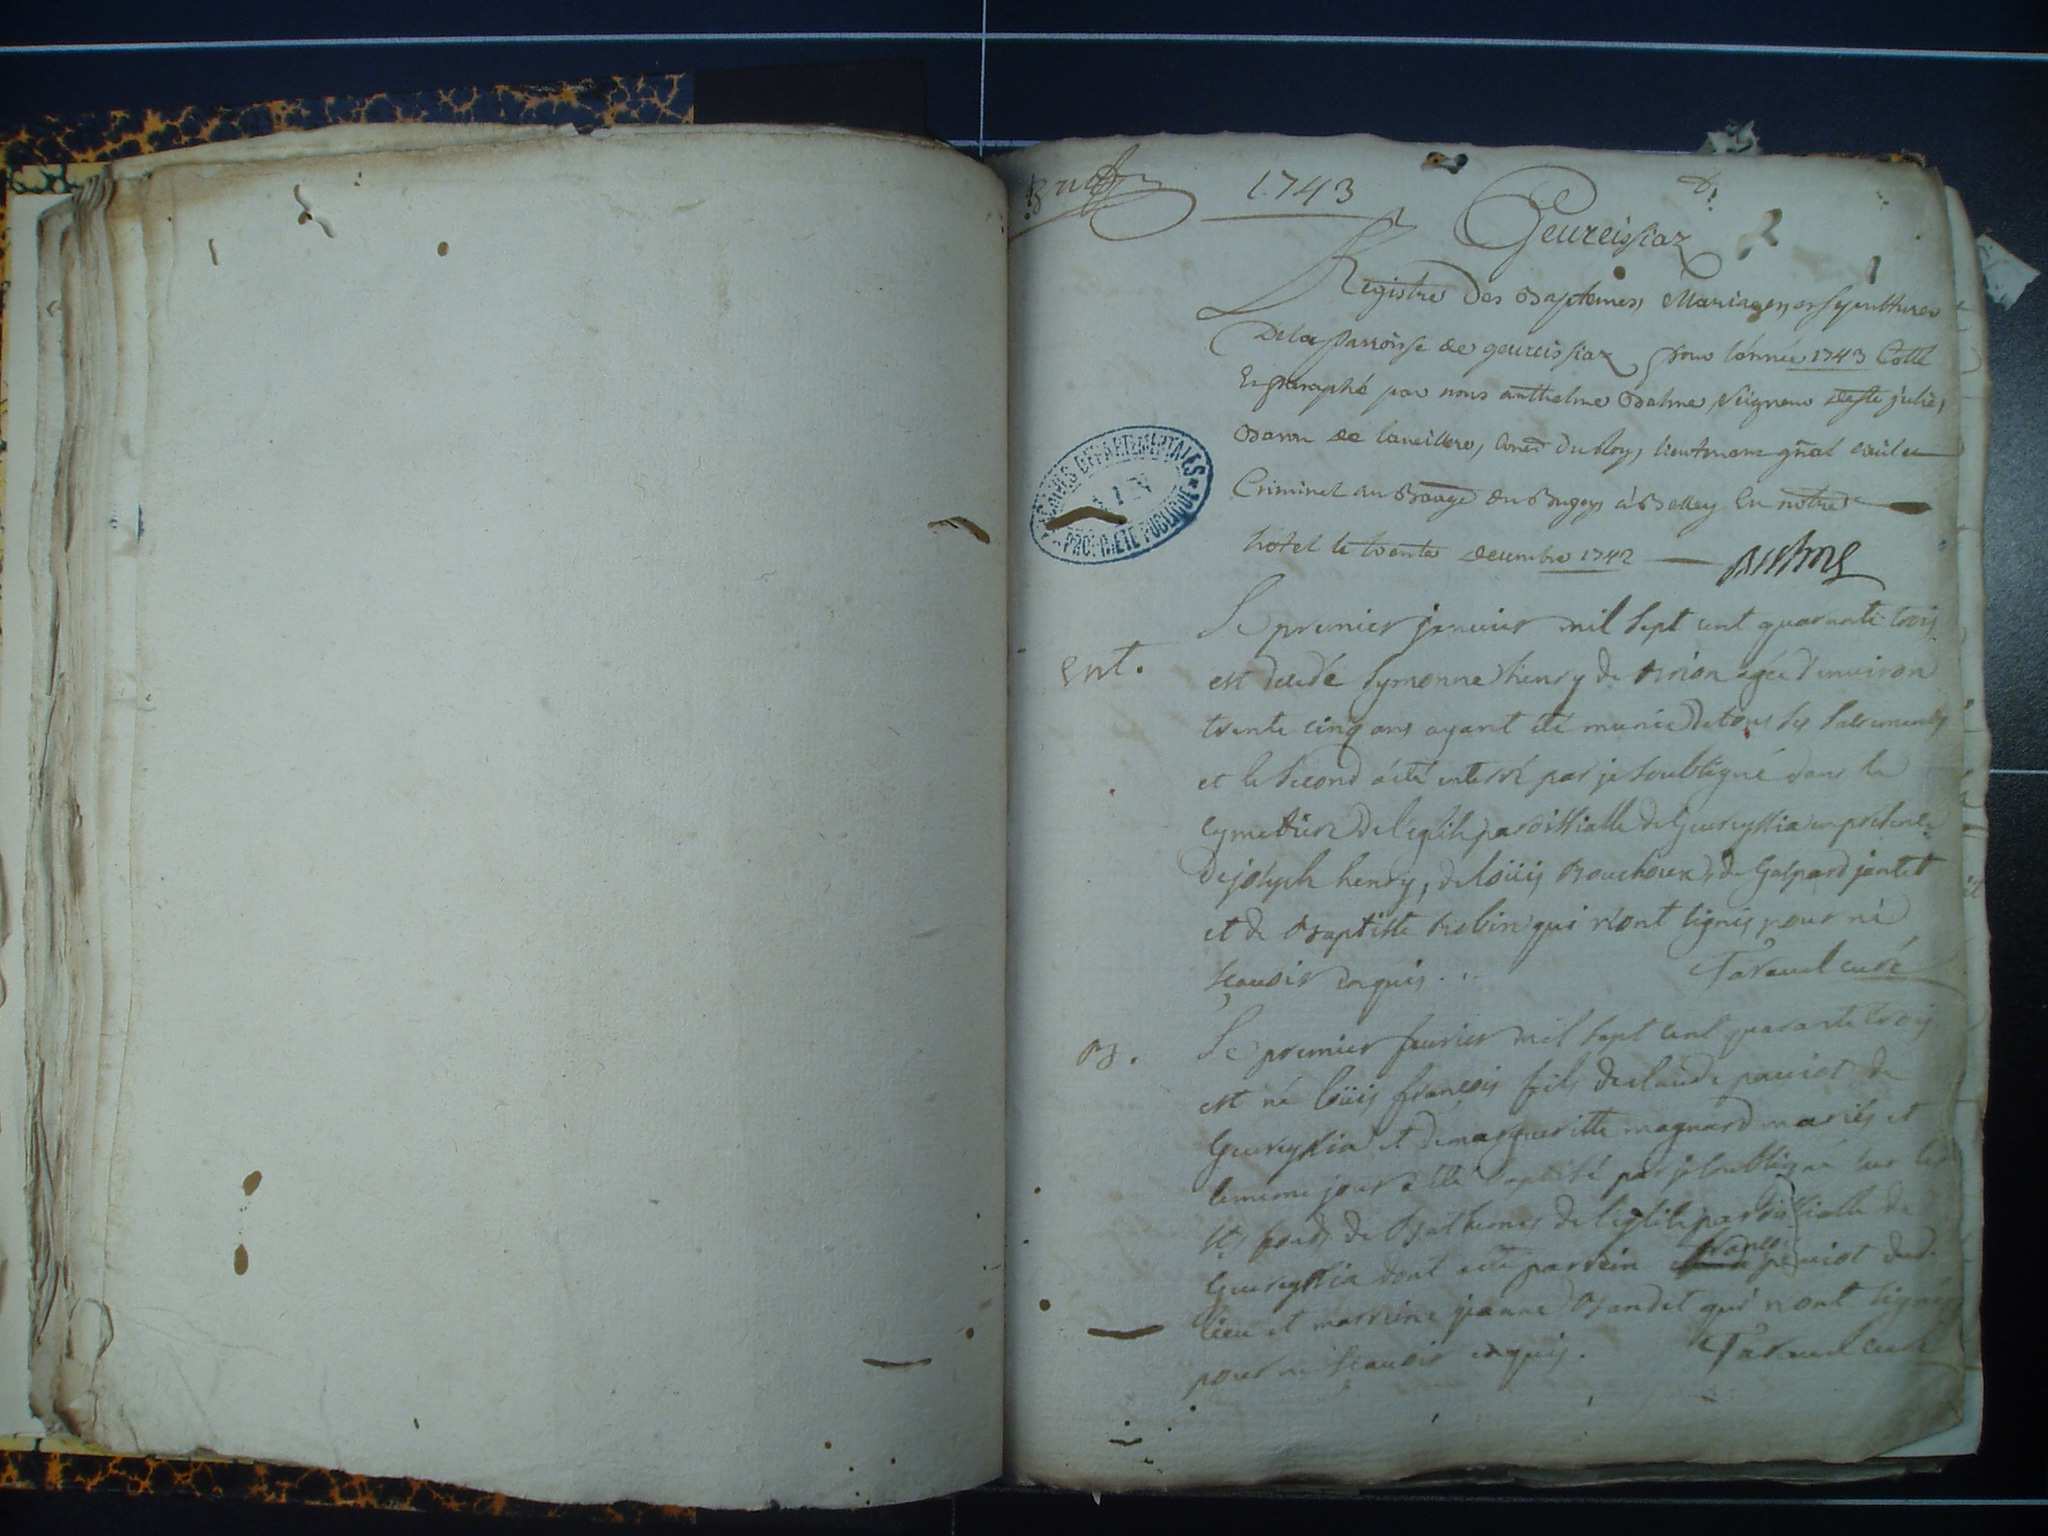 1743
Geureissiaz
Registre des Baptemes, Mariages, et Sepultures
De la Parroisse de geureissiaz pour lánnée 1743 Cotté
Et paraphé par nous anthelme Balme Seigneur de Ste julie,
Baron de Du Roy, lieutenant gñal Civil et
Criminel au Baage du Bugey à Belley En notre
hotel le trente decembre 1742
ARCHIVES DEPARTEMENTALES
PROPRIETE PUBLIQUE
Ent.
Le premier janvier mil sept cent quarante trois
est decedé Symonne henry de agée d'environ
trente cinq ans ayant été munie de tous les Sacrements
et le second a été enterré par je soubsigné dans le
cymetiere de l'eglise paroissialle de Geureyssia en presence
de joseph henry, de loüis Bouchoux, de Gaspard jantet
et de Baptiste Robin qui n'ont signés pour ne
sçavoir enquis. Taravel curé
B.
Le premier fevrier mil sept cent quarante trois
est né loüis françois fils de claude de
Geureyssia et de margueritte magnard mariés et
le meme jour a été baptisé par je soubsigné sur les
sts fonds de Bathemes de l'eglise paroissialle de
Geureyssia dont a été parrein dud.
lieu et marreine jeanne qui n'ont signés
pour ne sçavoir enquis. Taravel curé